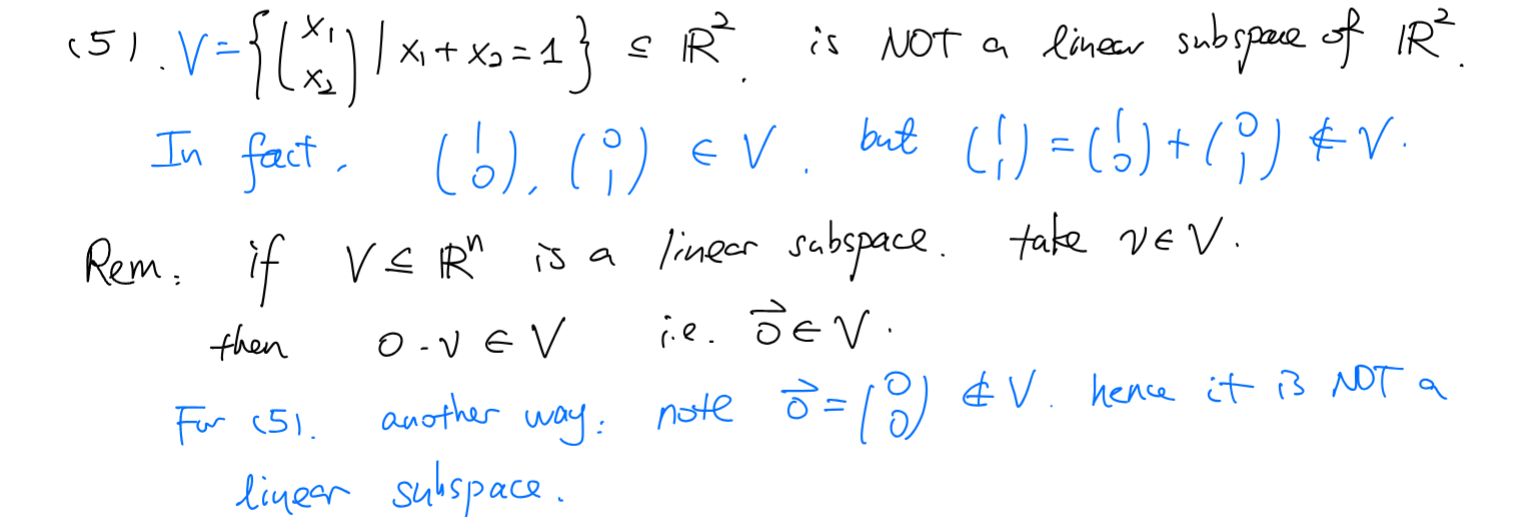 (5). V = {(x₁ x₂) | x₁ + x₂ = 1} ⊆ ℝ². is NOT a linear subspace of ℝ².
In fact, (1 0), (0 1) ∈ V. but (1 1) = (1 0) + (0 1) ∉ V.
Rem: if V ⊆ ℝⁿ is a linear subspace. take v ∈ V.
then 0·v ∈ V i.e. 0⃗ ∈ V.
For (5). another way: note 0⃗ = (0 0) ∉ V. hence it is NOT a
linear subspace.